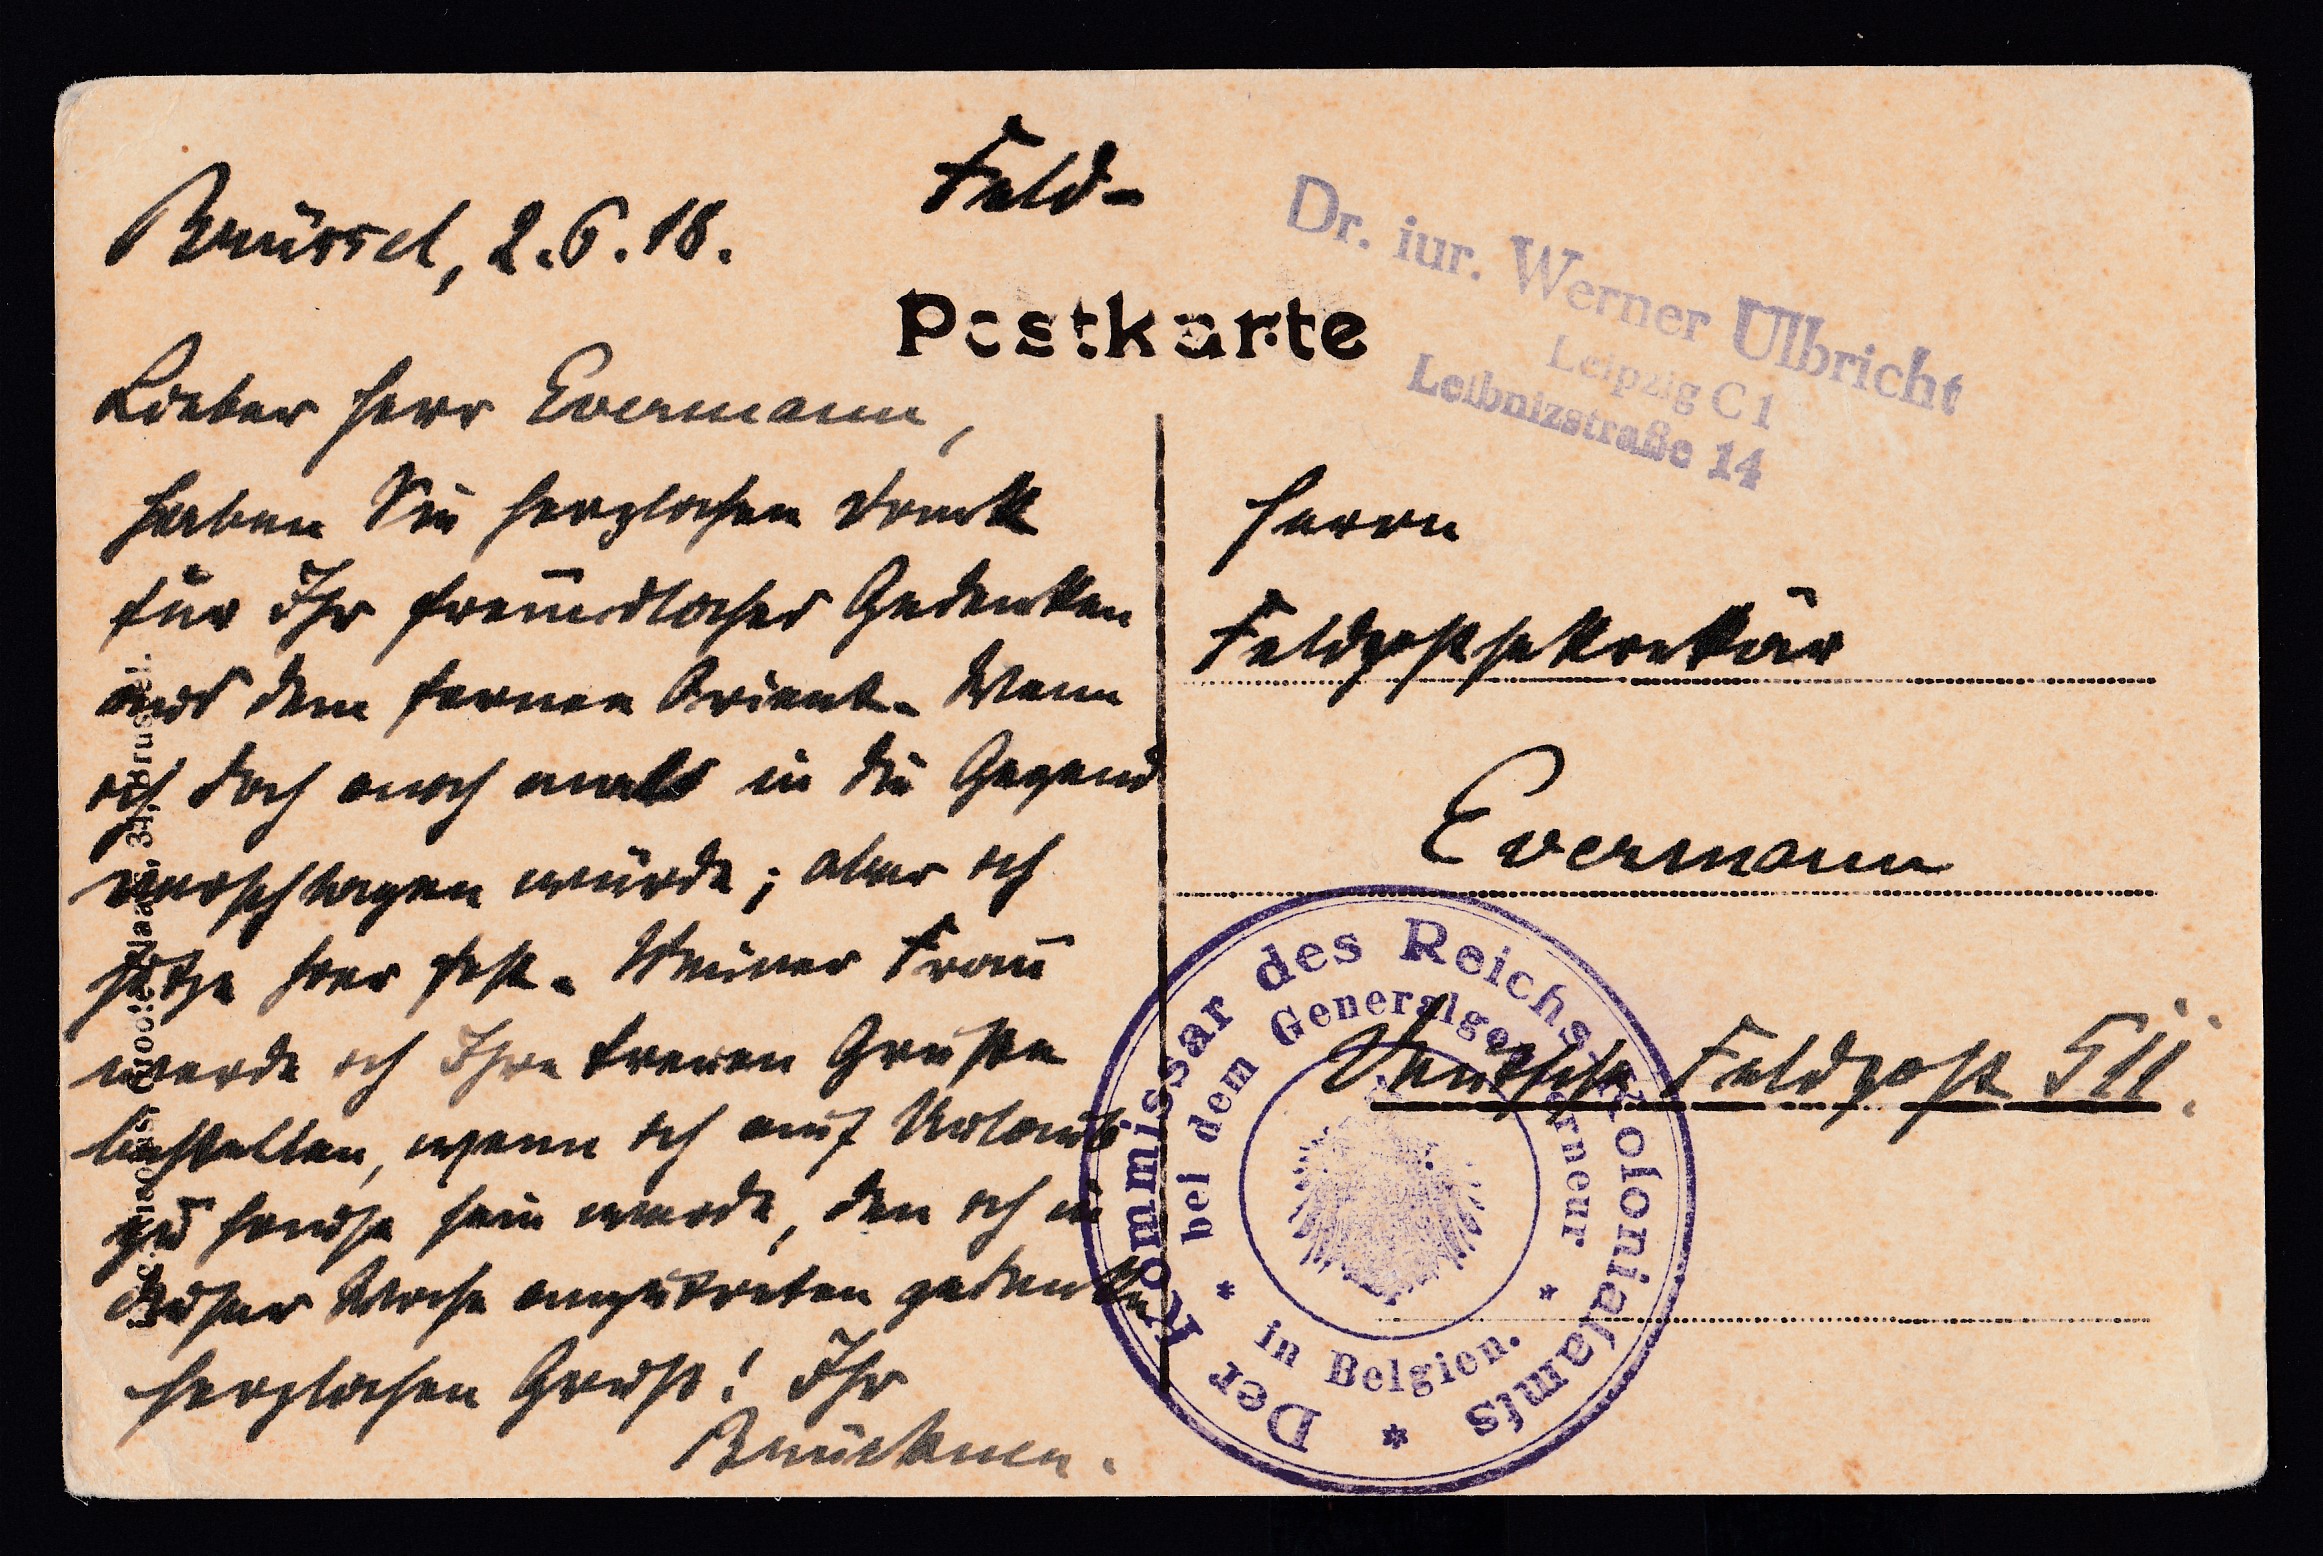 Feld-
Postkarte
Brüssel, 2.6.18.
Lieber Herr Evermann,
haben Sie herzlichen Dank
für Ihr freundliches Gedenken
aus dem fernen Orient. Wenn
ich doch auch mals in die Gegend
verschlagen würde; aber ich
sitze hier fest. Meiner Frau
werde ich Ihre treuen Grüße
bestellen, wenn ich auf Urlaub
zu Hause sein werde, den ich in
dieser Woche anzutreten gedenke.
Herzlichen Gruß! Ihr
Brückner.
Dr. iur. Werner Ulbricht
Leipzig C 1
Leibnizstraße 14
Herrn
Feldpostsekretär
Evermann
Deutsche Feldpost 511.
Der Kommissar des Reichs-Kolonialamts
bei dem Generalgouverneur
in Belgien.